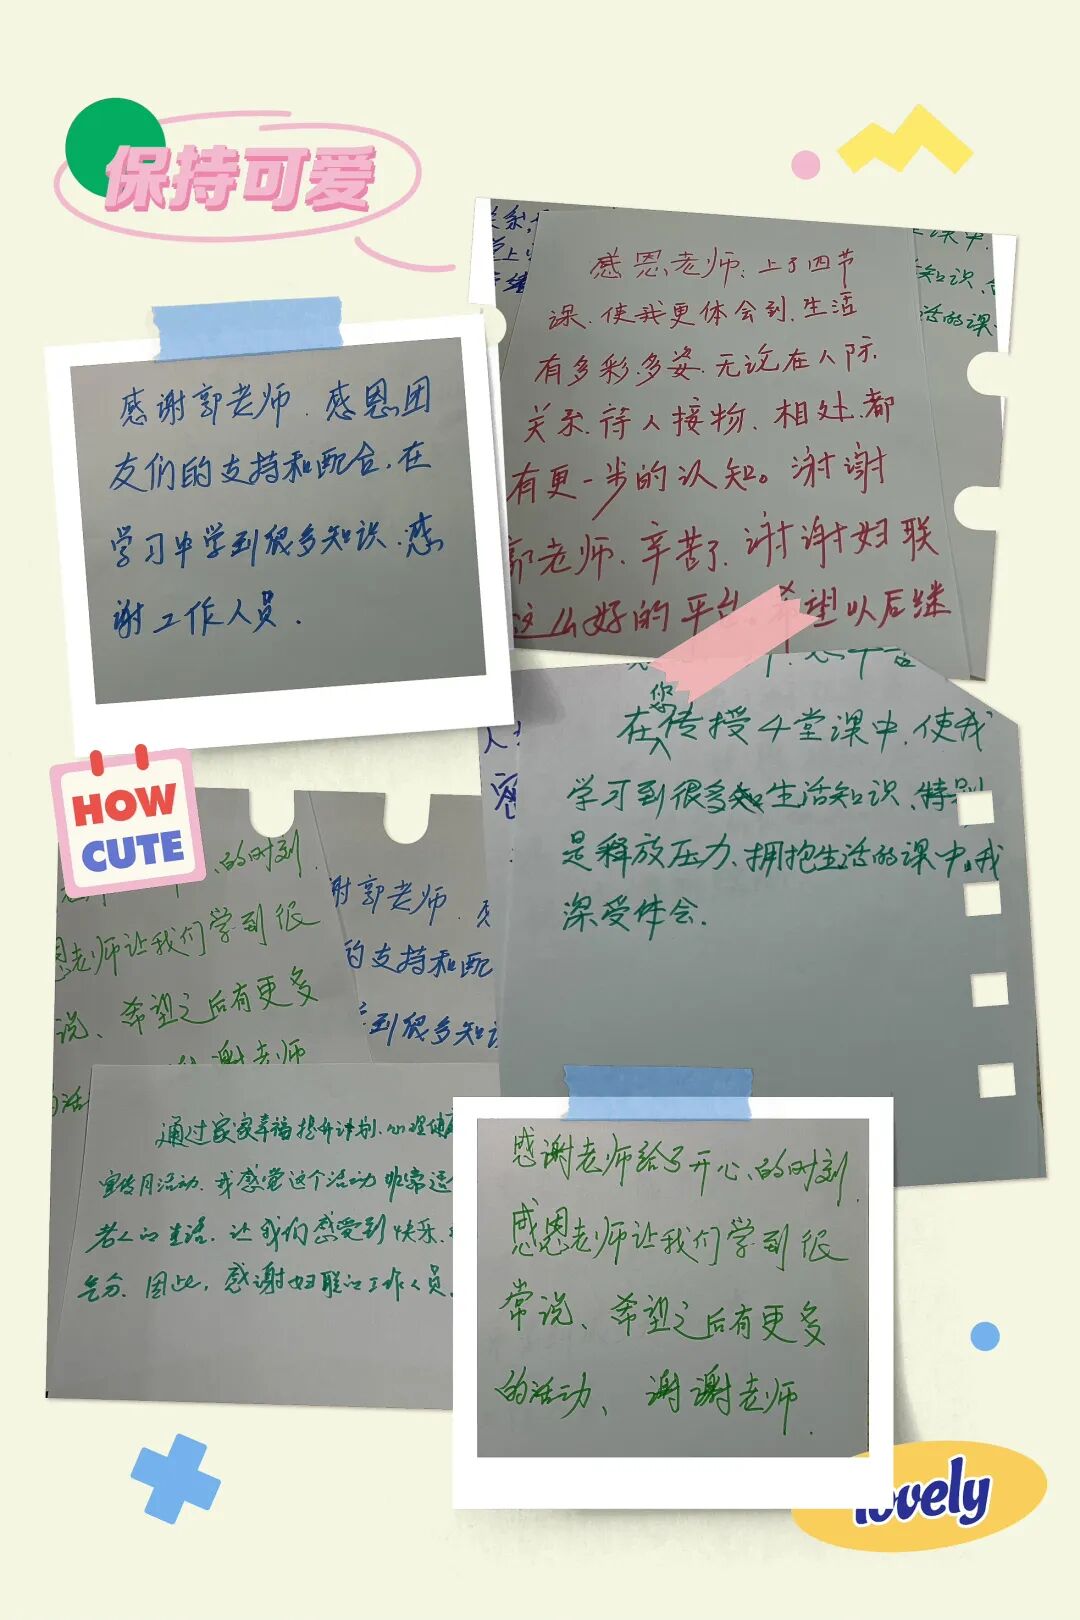 保持可爱
感恩老师：上了四节
课、使我更体会到、生活
有多彩多姿、无论在人际
关系、待人接物、相处、都
有更一步的认知。谢谢
郭老师、辛苦了、谢谢妇联
这么好的平台、希望以后继
感谢郭老师、感恩团
友们的支持和配合、在
学习中学到很多知识、感
谢工作人员.
在您传授4堂课中、使我
学习到很多生活知识、特别
是释放压力、拥抱生活的课中、我
深受体会.
HOW
CUTE
的时刻.
恩老师让我们学到很
说、希望之后有更多
谢老师
谢郭老师.
的支持和配
到很多知识
通过家家幸福提升计划、心理健康
宣传月活动、我感觉这个活动非常适
老人的生活、让我们感受到快乐、
气分、因此，感谢妇联的工作人员、
感谢老师给了开心、的时刻.
感恩老师让我们学到很
常说、希望之后有更多
的活动、谢谢老师.
lovely